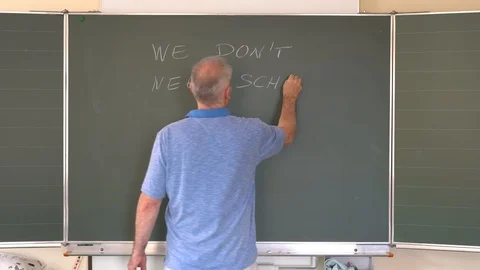 WE DON'T
NE SCH